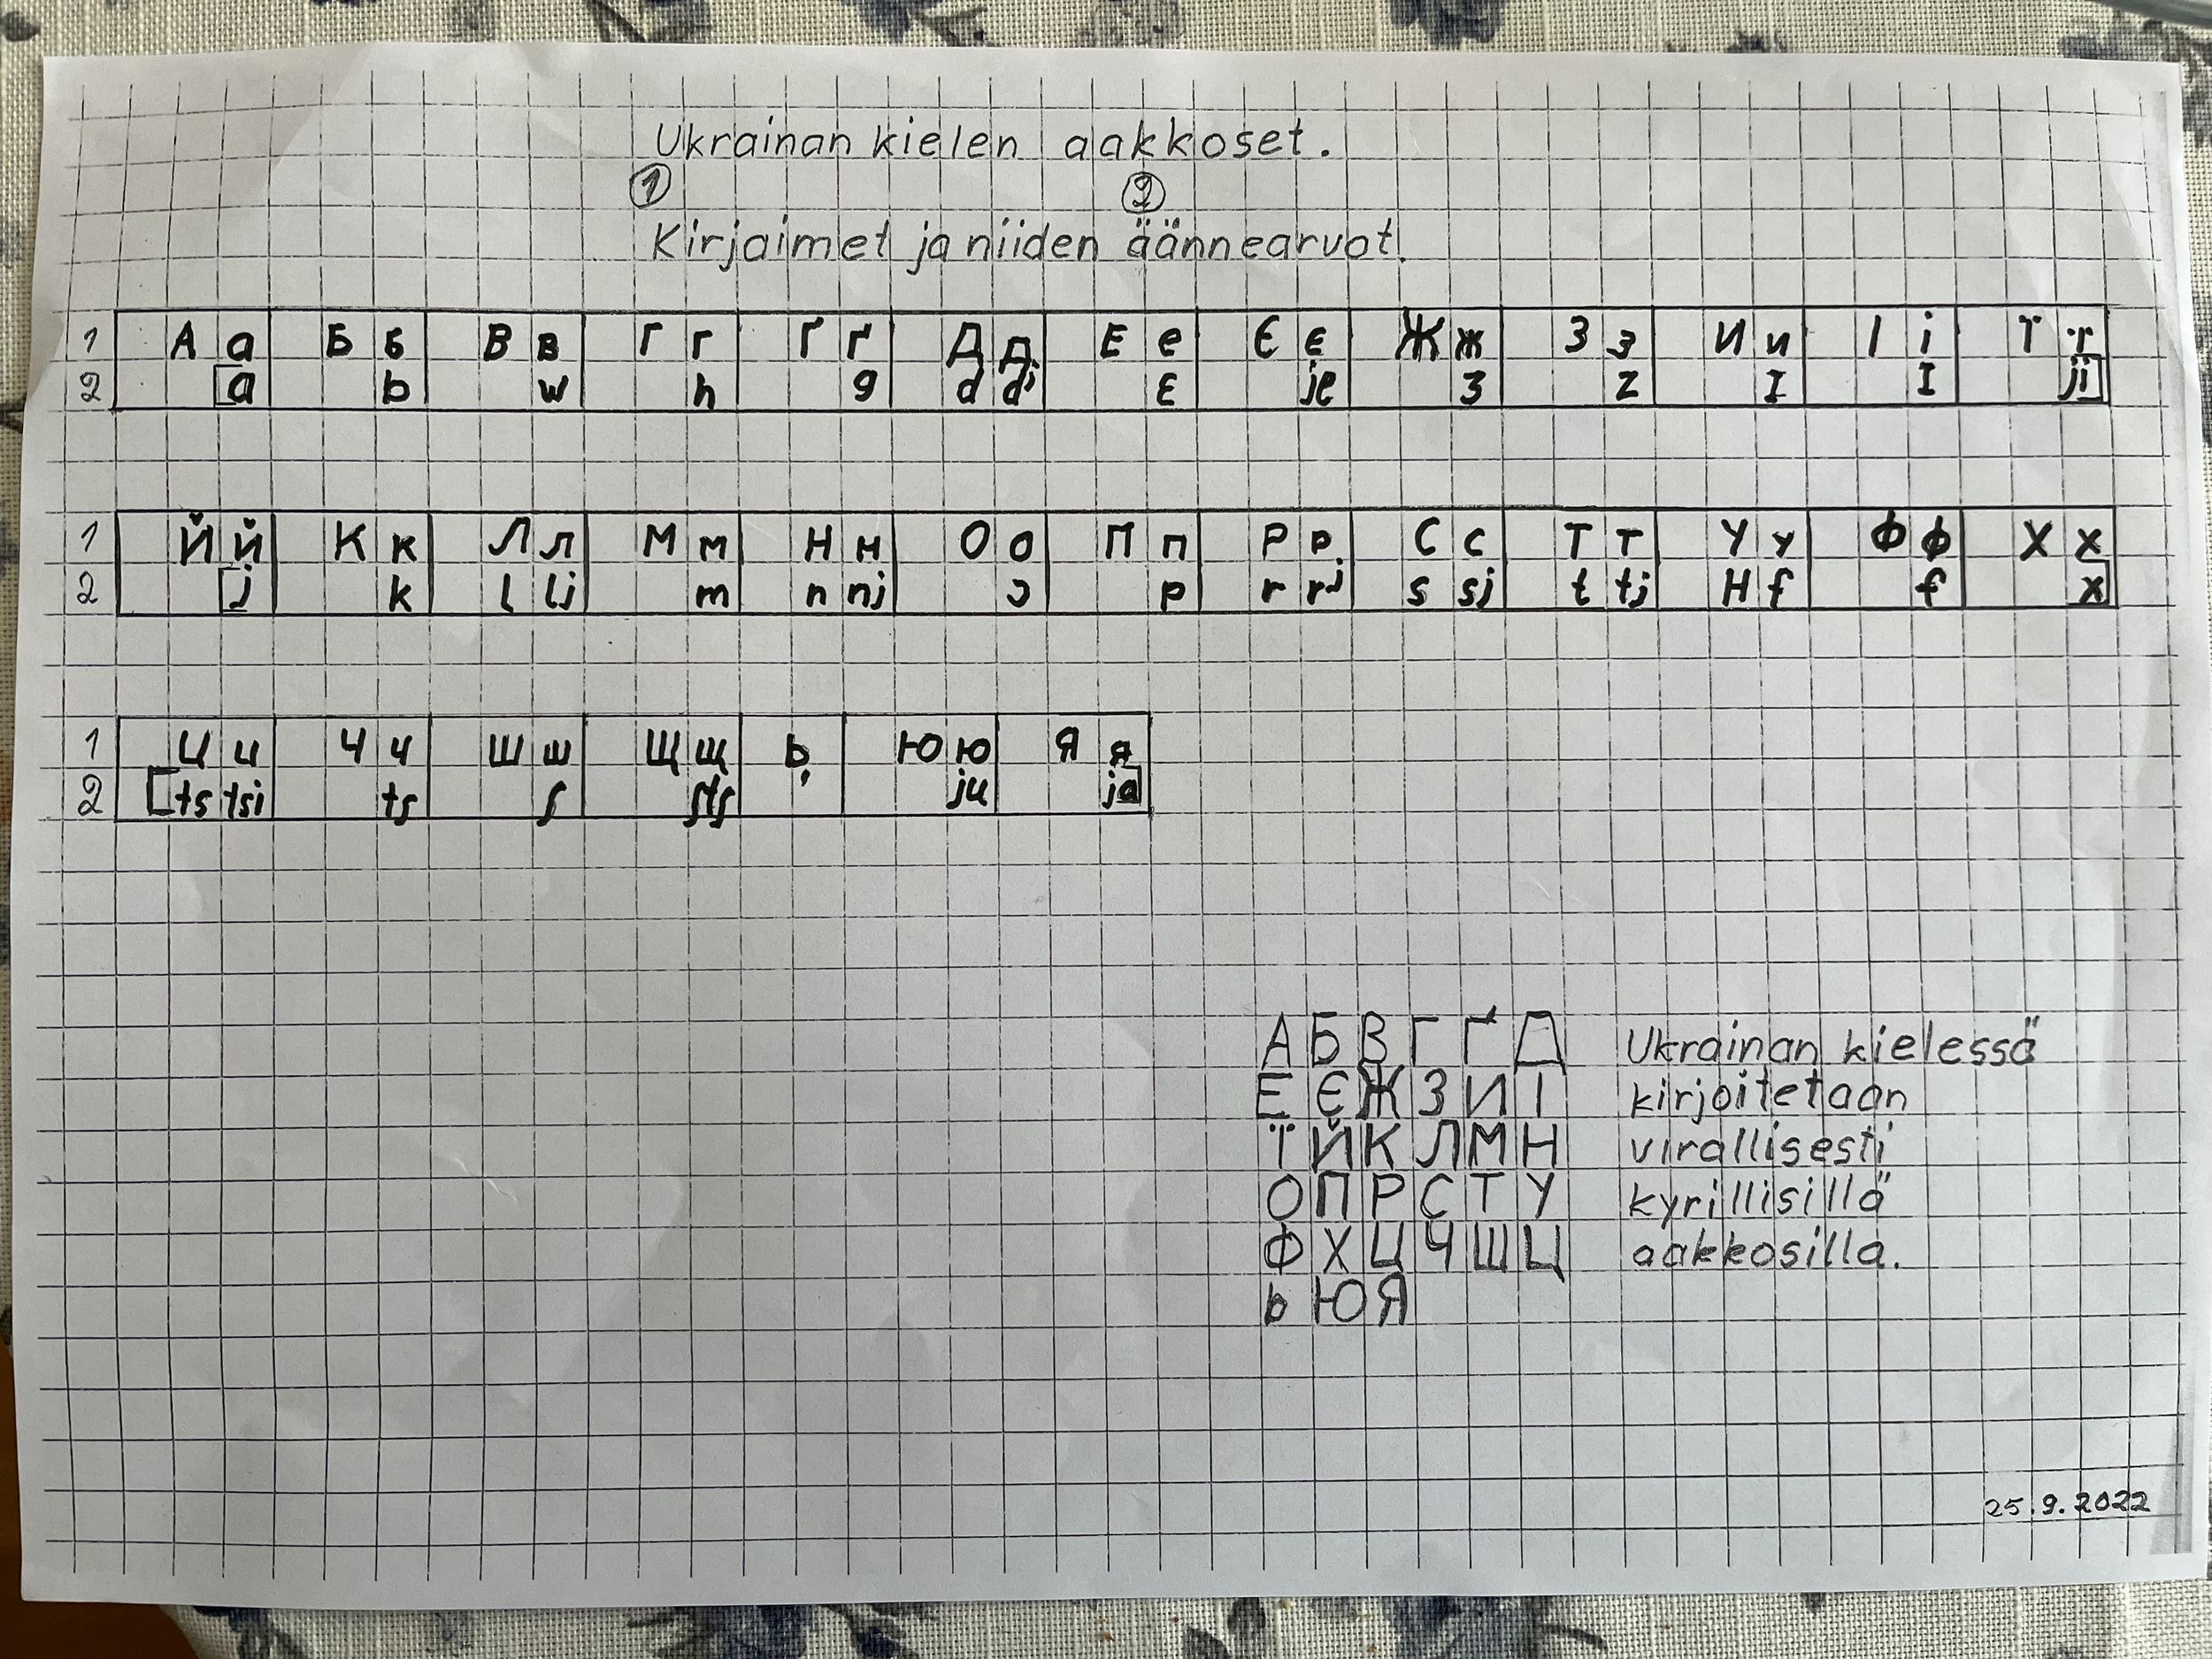 Ukrainan kielen aakkoset.
① ②
Kirjaimet ja niiden äännearvot.
1 А а Б б В в Г г Ґ ґ Д д Е е Є є Ж ж З з И и І і Ї ї
2 [a b w h g d dj ɛ je ʒ z I I ji]
1 Й й К к Л л М м Н н О о П п Р р С с Т т У у Ф ф Х х
2 [j k l lj m n nj ɔ p r rj s sj t tj H f f x]
1 Ц ц Ч ч Ш ш Щ щ Ь Ю ю Я я
2 [ts tsi tʃ ʃ ʃtʃ ' ju ja]
А Б В Г Ґ Д Ukrainan kielessä
Е Є Ж З И І kirjoitetaan
Ї Й К Л М Н virallisesti
О П Р С Т У kyrillisillä
Ф Х Ц Ч Ш Ц aakkosilla.
Ь Ю Я
25.9.2022